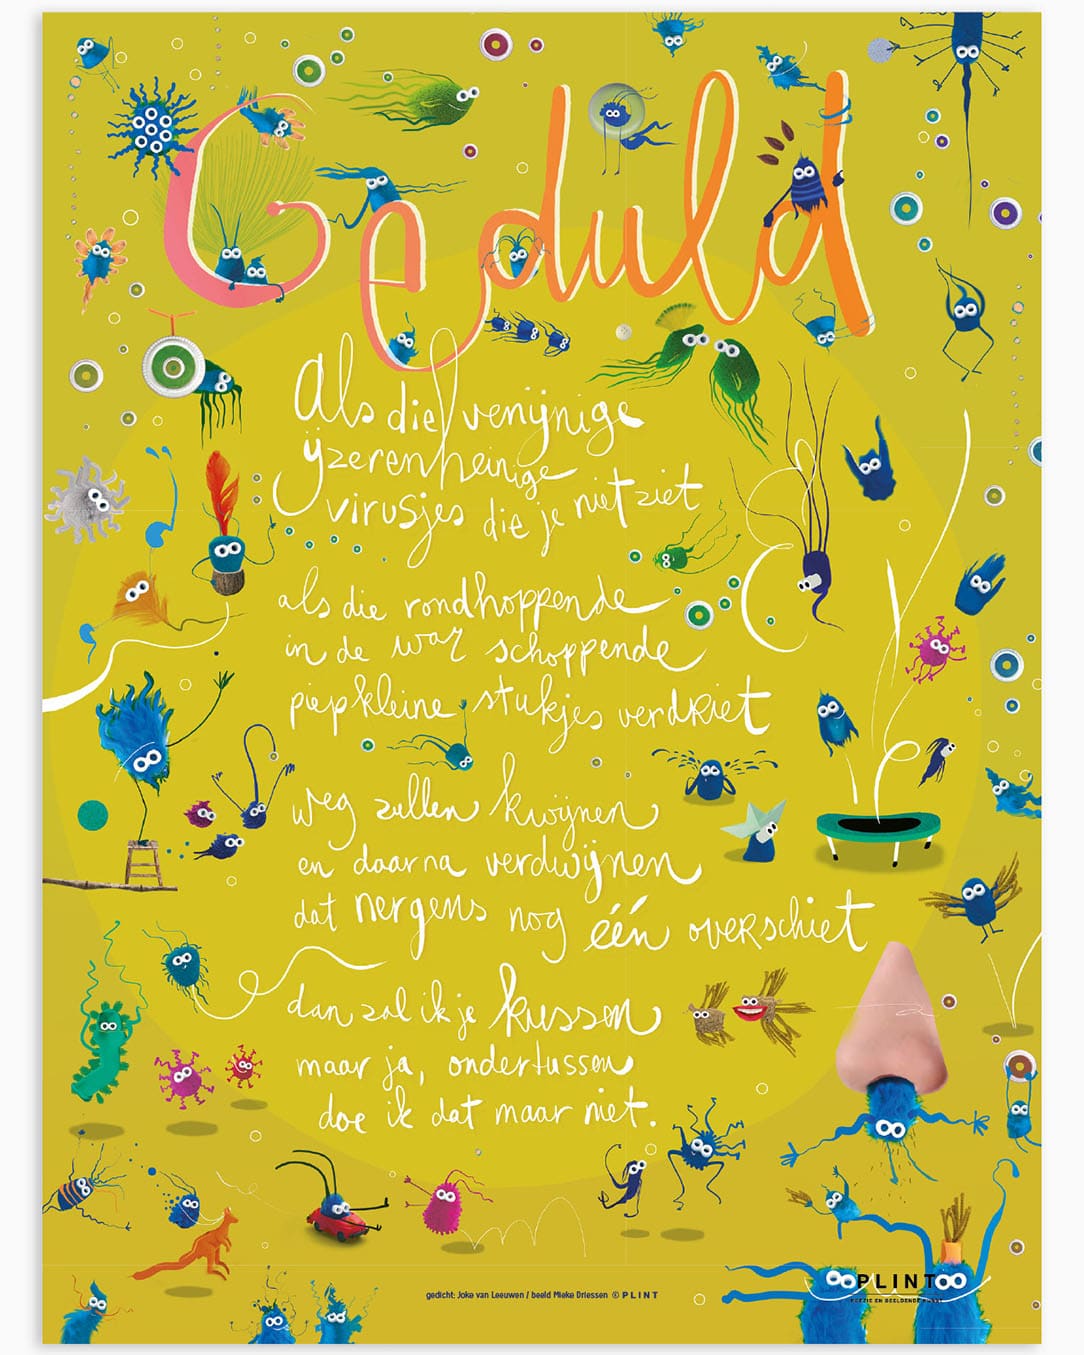 Geduld
Als die venijnige
ijzerenheinige
virusjes die je niet ziet
als die rondhoppende
in de war schoppende
piepkleine stukjes verdriet
weg zullen kwijnen
en daarna verdwijnen
dat nergens nog één overschiet
dan zal ik je kussen
maar ja, ondertussen
doe ik dat maar niet.
gedicht: Joke van Leeuwen / beeld Mieke Driessen © PLINT
PLINT
POËZIE EN BEELDENDE KUNST